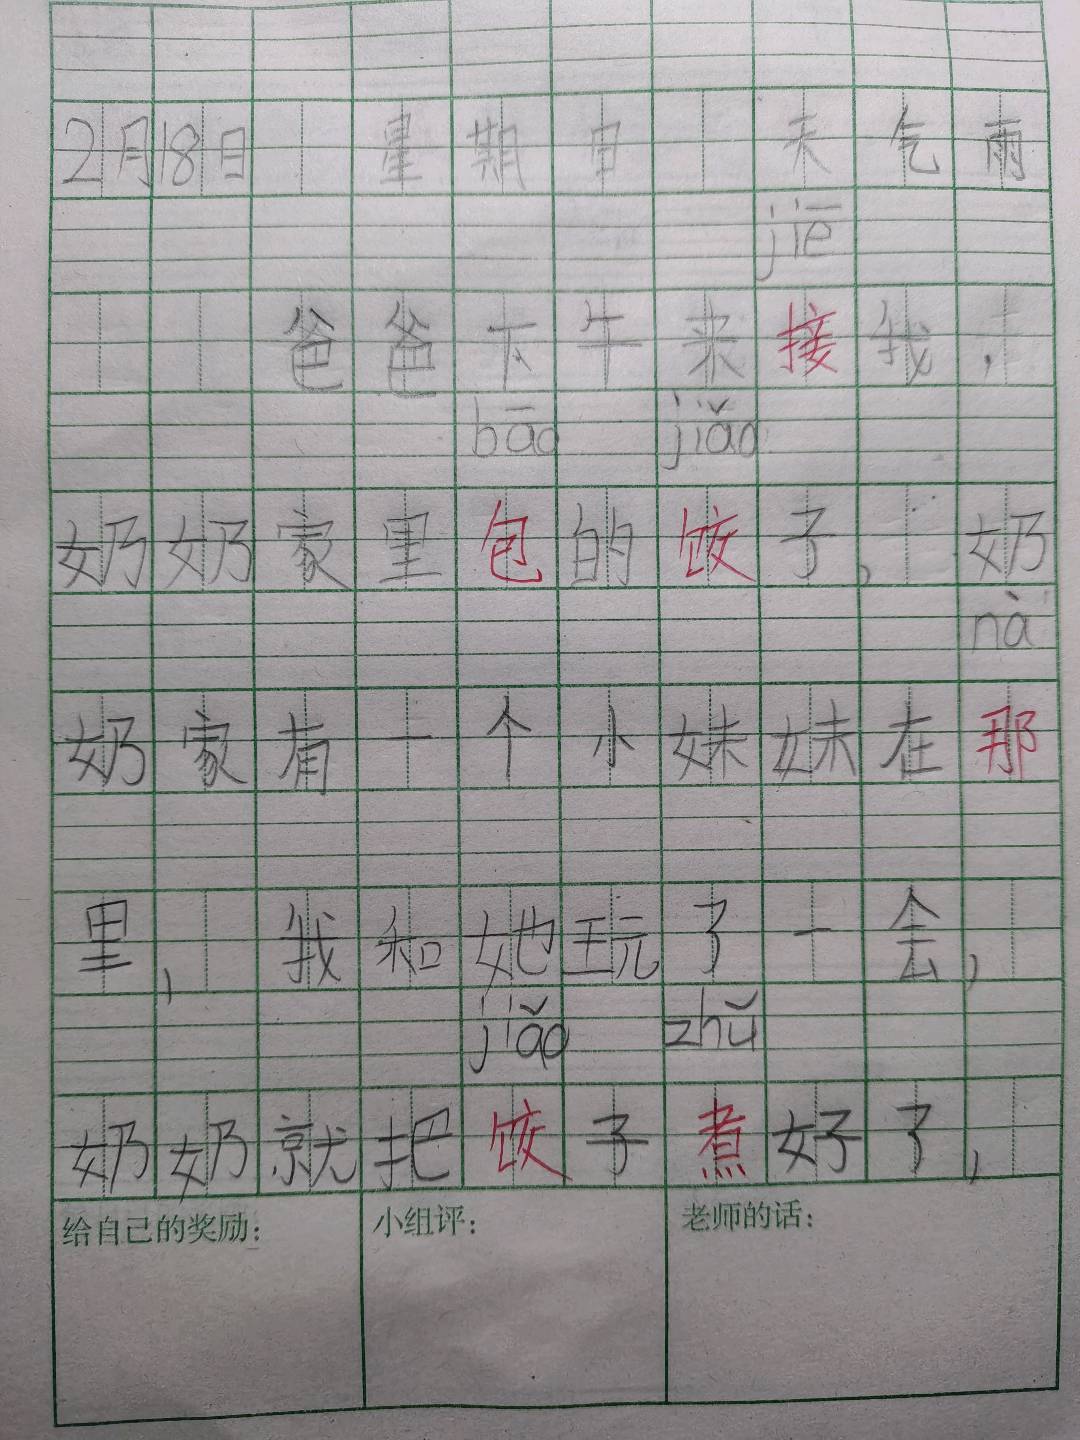 2月18日 星期日 天气雨
jiē
爸爸下午来接我，
bāo jiǎo
奶奶家里包的饺子，奶
nà
奶家有一个小妹妹在那
里，我和她玩了一会，
jiǎo zhǔ
奶奶就把饺子煮好了，
给自己的奖励： 小组评： 老师的话：